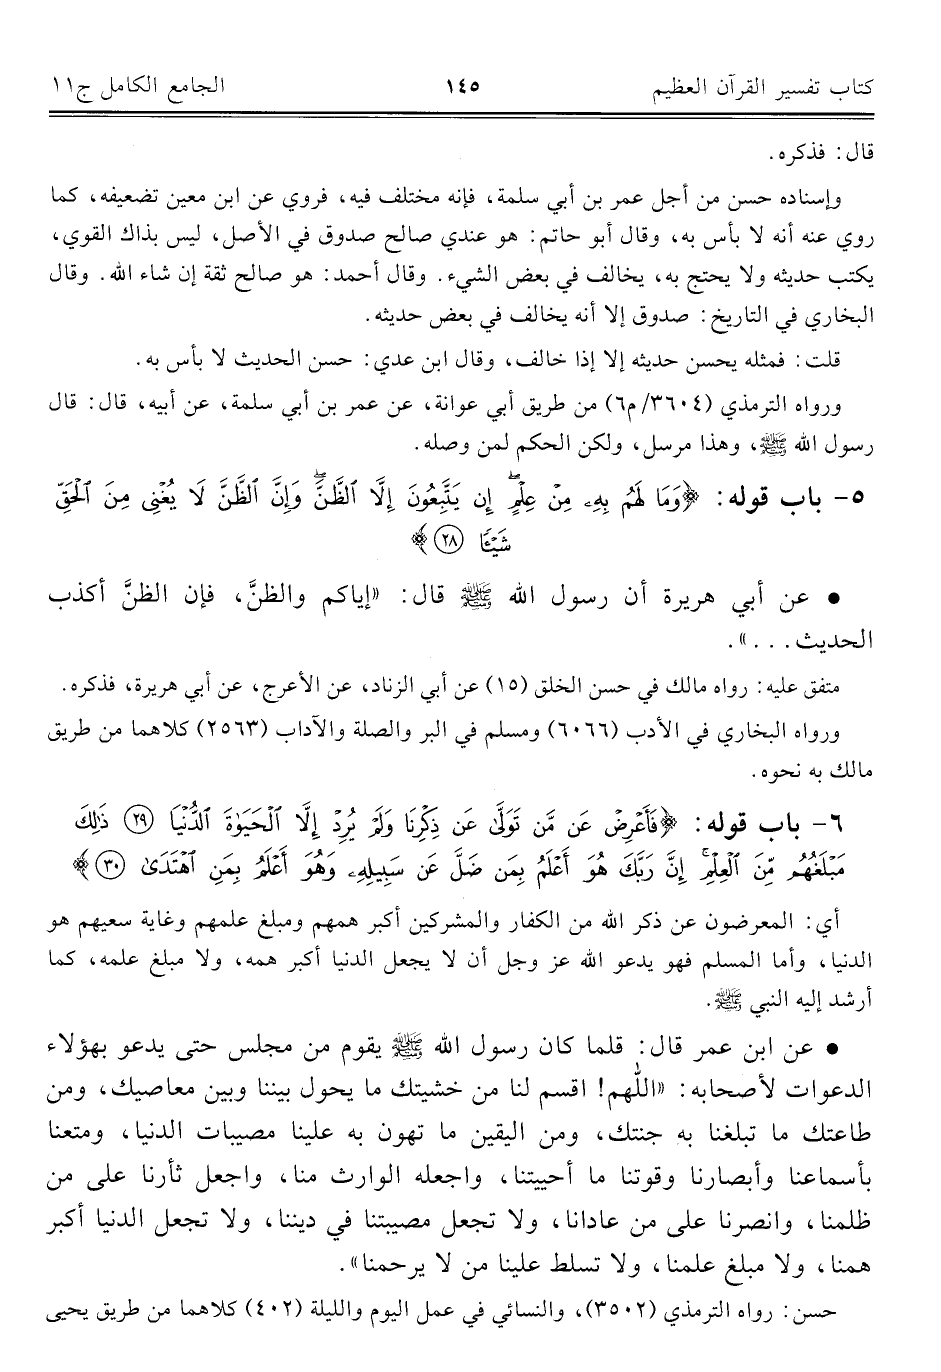 كتاب تفسير القرآن العظيم ١٤٥ الجامع الكامل ج١١
قال: فذكره.
وإسناده حسن من أجل عمر بن أبي سلمة، فإنه مختلف فيه، فروي عن ابن معين تضعيفه، كما
روي عنه أنه لا بأس به، وقال أبو حاتم: هو عندي صالح صدوق في الأصل، ليس بذاك القوي،
يكتب حديثه ولا يحتج به، يخالف في بعض الشيء. وقال أحمد: هو صالح ثقة إن شاء الله. وقال
البخاري في التاريخ: صدوق إلا أنه يخالف في بعض حديثه.
قلت: فمثله يحسن حديثه إلا إذا خالف، وقال ابن عدي: حسن الحديث لا بأس به.
ورواه الترمذي (٣٦٠٤/ م٦) من طريق أبي عوانة، عن عمر بن أبي سلمة، عن أبيه، قال: قال
رسول الله ﷺ، وهذا مرسل، ولكن الحكم لمن وصله.
٥- باب قوله: ﴿وَمَا لَهُم بِهِۦ مِنْ عِلْمٍۖ إِن يَتَّبِعُونَ إِلَّا ٱلظَّنَّۖ وَإِنَّ ٱلظَّنَّ لَا يُغْنِي مِنَ ٱلْحَقِّ
شَيْـًٔا ٢٨﴾
• عن أبي هريرة أن رسول الله ﷺ قال: «إياكم والظنَّ، فإن الظنَّ أكذب
الحديث...».
متفق عليه: رواه مالك في حسن الخلق (١٥) عن أبي الزناد، عن الأعرج، عن أبي هريرة، فذكره.
ورواه البخاري في الأدب (٦٠٦٦) ومسلم في البر والصلة والآداب (٢٥٦٣) كلاهما من طريق
مالك به نحوه.
٦- باب قوله: ﴿فَأَعْرِضْ عَن مَّن تَوَلَّىٰ عَن ذِكْرِنَا وَلَمْ يُرِدْ إِلَّا ٱلْحَيَوٰةَ ٱلدُّنْيَا ٢٩ ذَٰلِكَ
مَبْلَغُهُم مِّنَ ٱلْعِلْمِۚ إِنَّ رَبَّكَ هُوَ أَعْلَمُ بِمَن ضَلَّ عَن سَبِيلِهِۦ وَهُوَ أَعْلَمُ بِمَنِ ٱهْتَدَىٰ ٣٠﴾
أي: المعرضون عن ذكر الله من الكفار والمشركين أكبر همهم ومبلغ علمهم وغاية سعيهم هو
الدنيا، وأما المسلم فهو يدعو الله عز وجل أن لا يجعل الدنيا أكبر همه، ولا مبلغ علمه، كما
أرشد إليه النبي ﷺ.
• عن ابن عمر قال: قلما كان رسول الله ﷺ يقوم من مجلس حتى يدعو بهؤلاء
الدعوات لأصحابه: «اللّٰهم! اقسم لنا من خشيتك ما يحول بيننا وبين معاصيك، ومن
طاعتك ما تبلغنا به جنتك، ومن اليقين ما تهون به علينا مصيبات الدنيا، ومتعنا
بأسماعنا وأبصارنا وقوتنا ما أحييتنا، واجعله الوارث منا، واجعل ثأرنا على من
ظلمنا، وانصرنا على من عادانا، ولا تجعل مصيبتنا في ديننا، ولا تجعل الدنيا أكبر
همنا، ولا مبلغ علمنا، ولا تسلط علينا من لا يرحمنا».
حسن: رواه الترمذي (٣٥٠٢)، والنسائي في عمل اليوم والليلة (٤٠٢) كلاهما من طريق يحيى